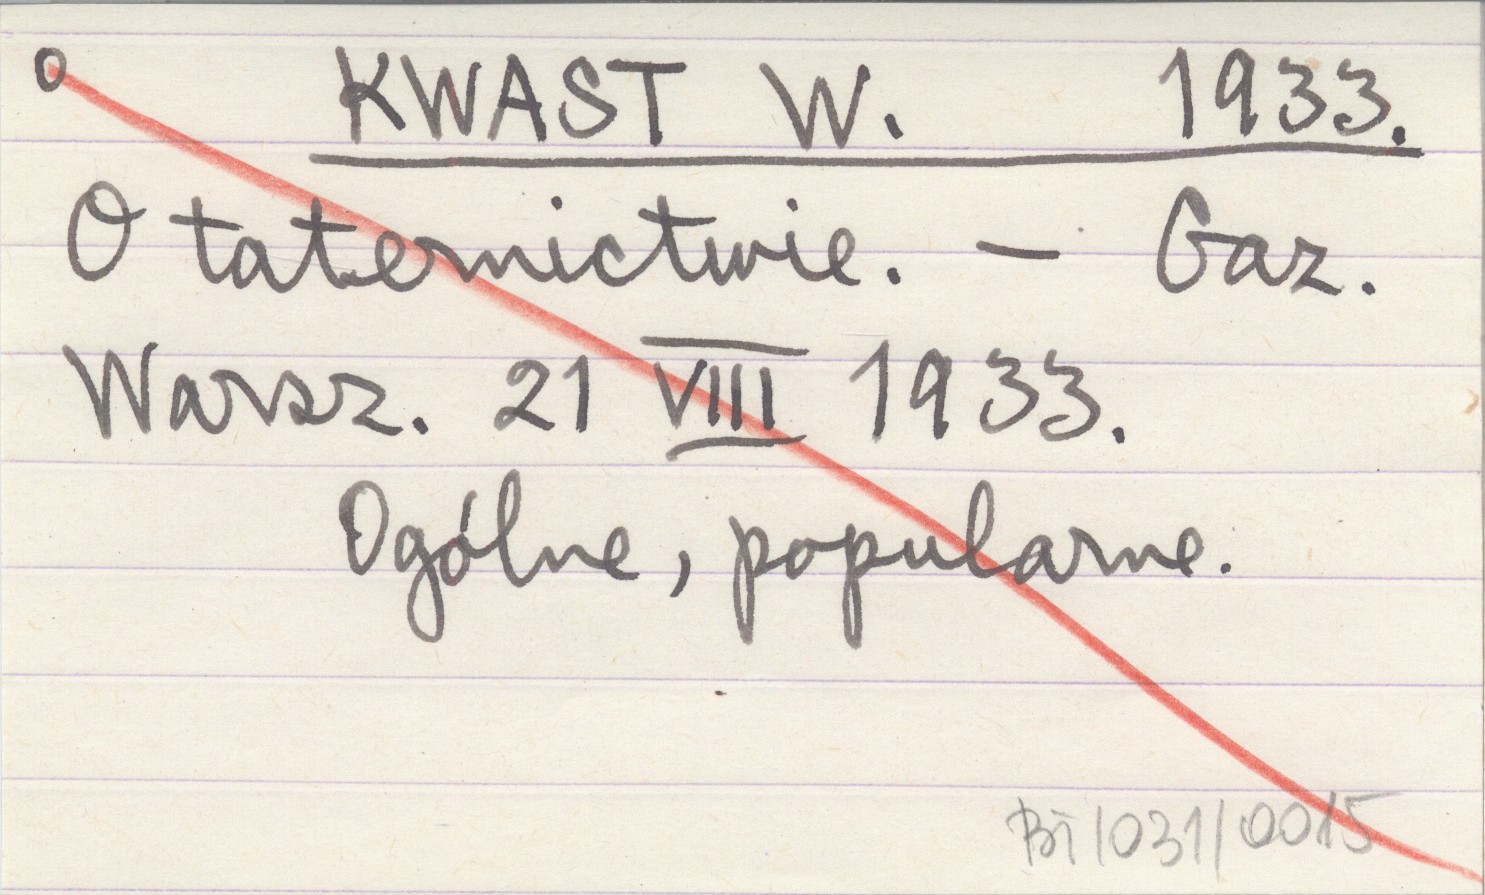 O KWAST W. 1933.
O taternictwie. — Gaz.
Warsz. 21 VIII 1933.
Ogólne, popularne.
BT/031/0015